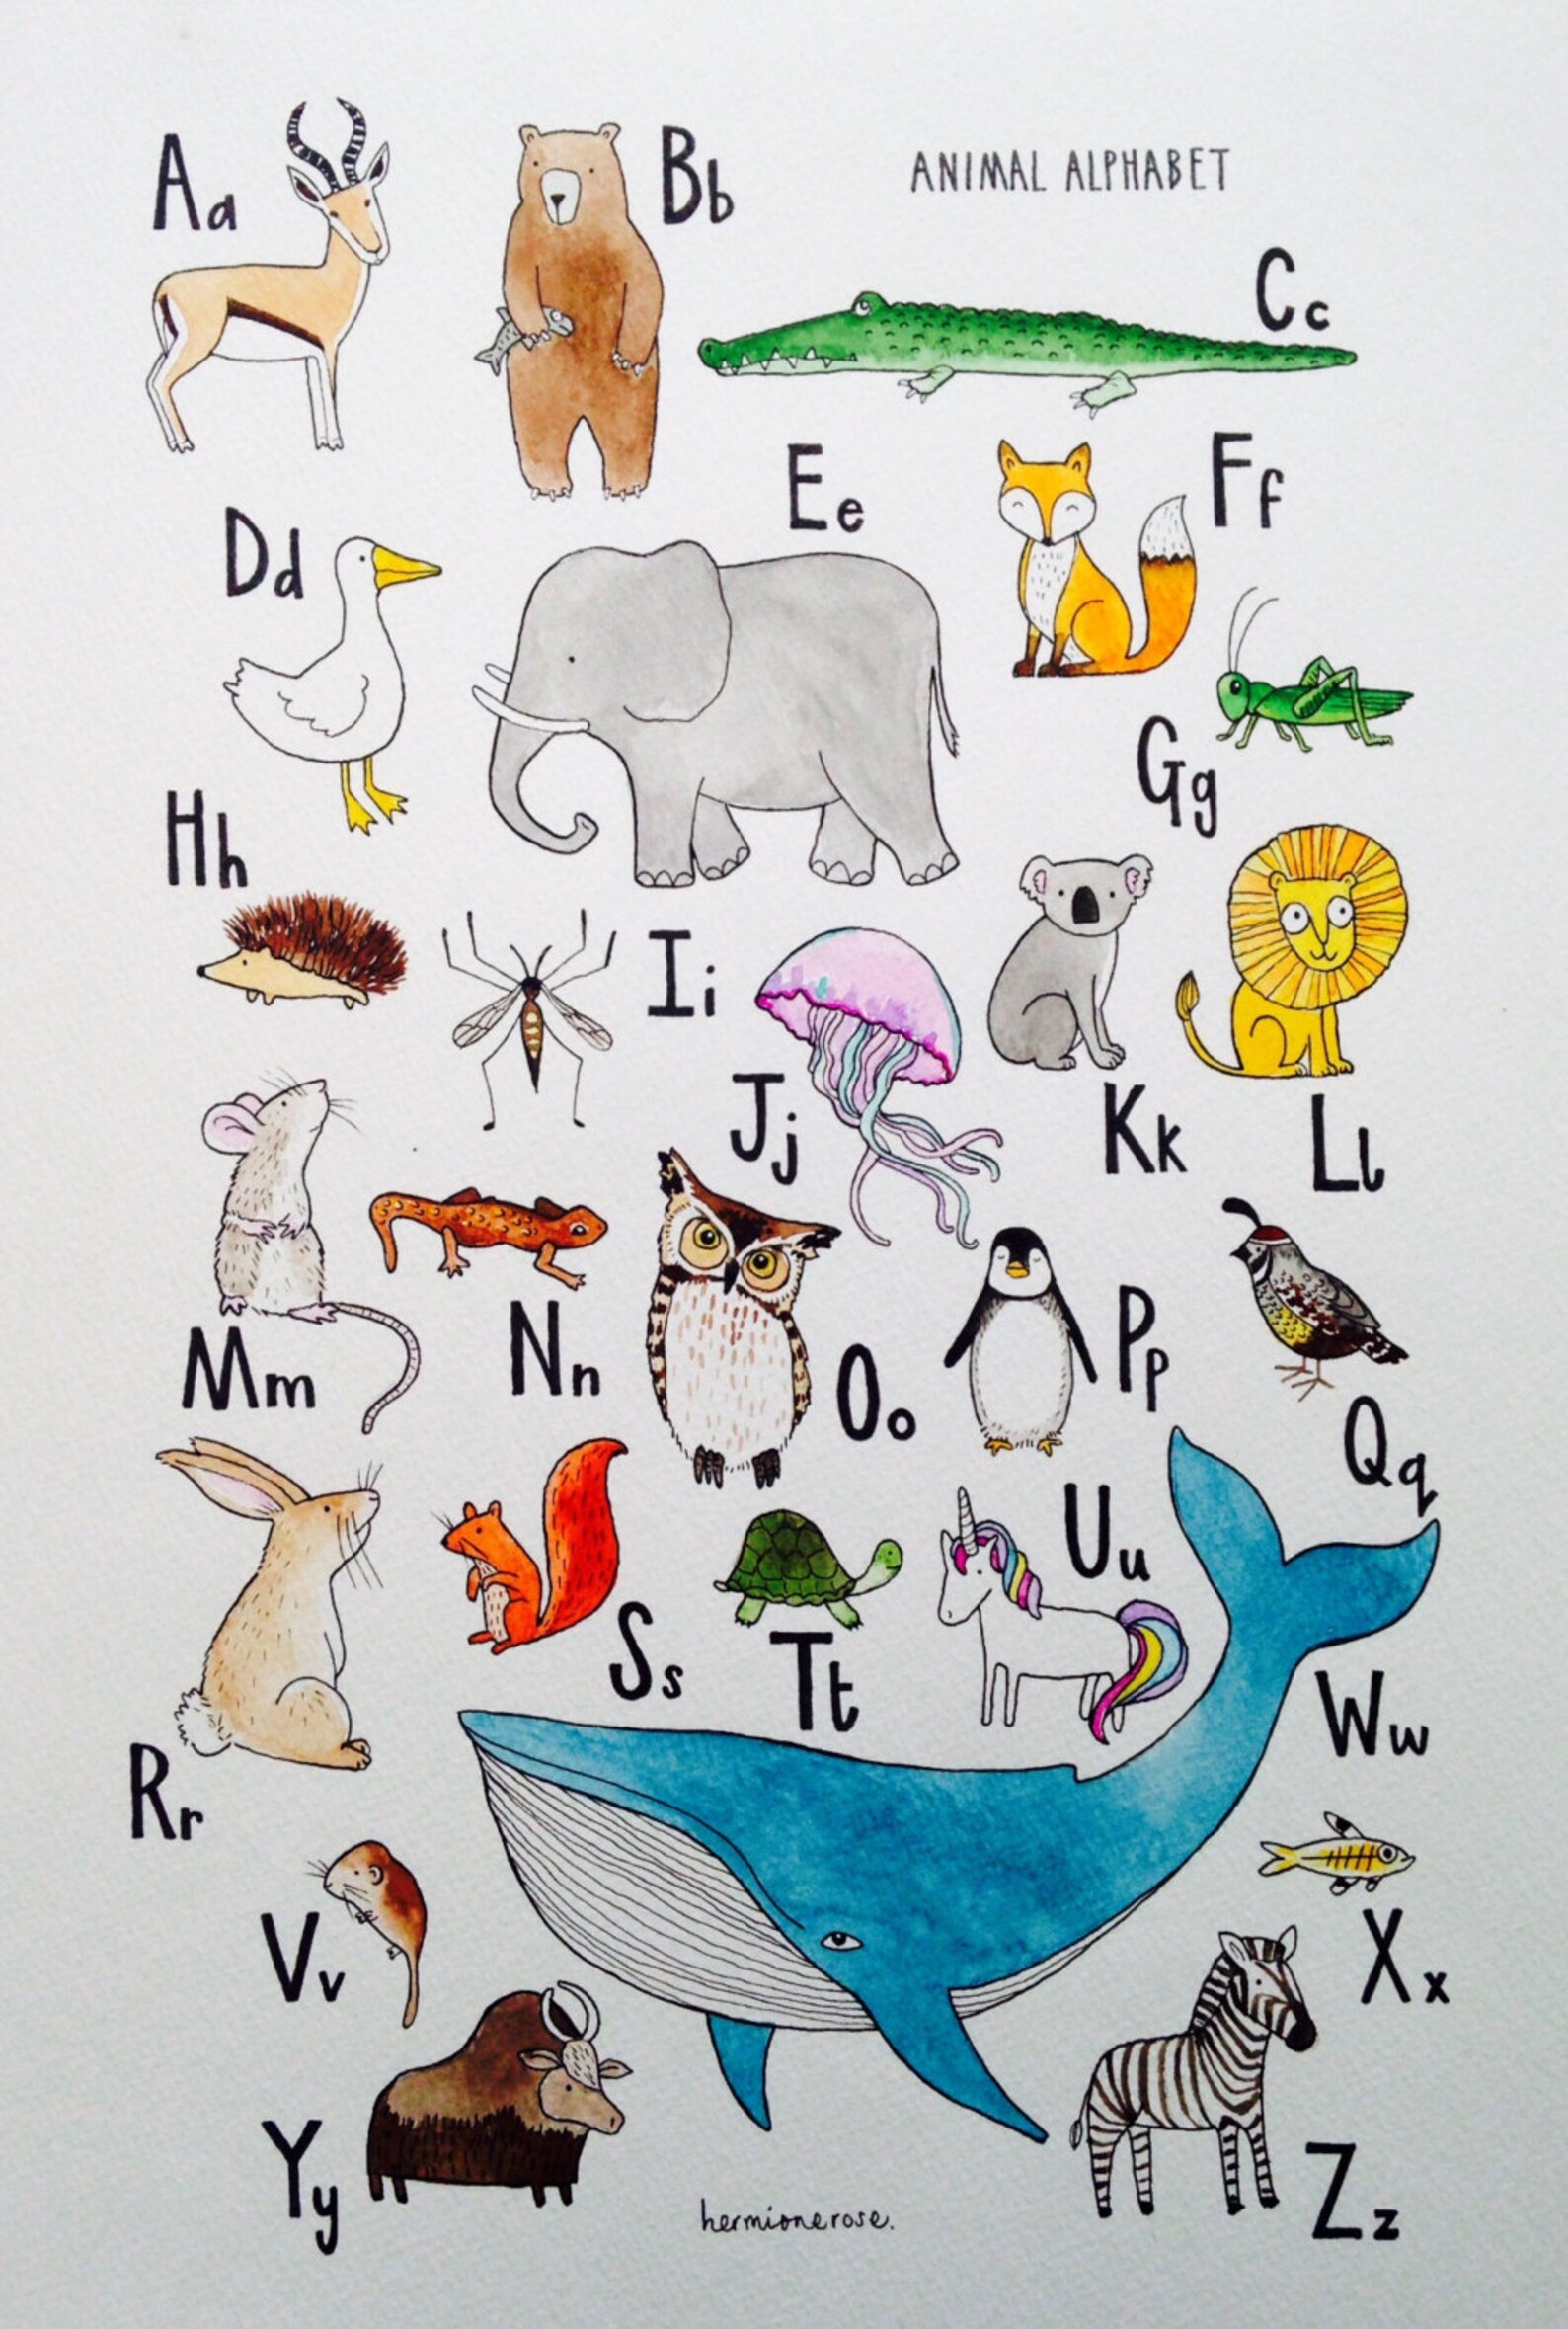 Aa
Bb
ANIMAL ALPHABET
Cc
Dd
Ee
Ff
Gg
Hh
Ii
Jj
Kk
Ll
Mm
Nn
Oo
Pp
Qq
Rr
Ss
Tt
Uu
Vv
Ww
Xx
Yy
Zz
hermionerose.